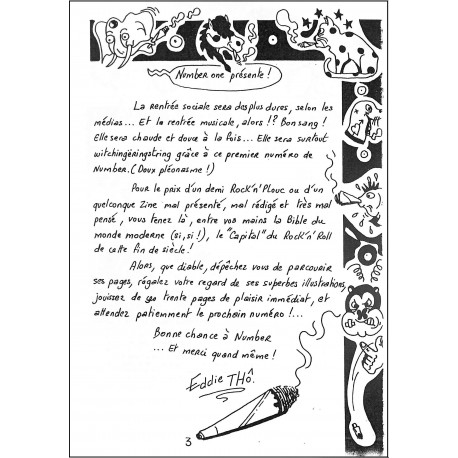 Number one présente !
La rentrée sociale sera des plus dures, selon les
médias... Et la rentrée musicale, alors !? Bon sang !
Elle sera chaude et douce à la fois... Elle sera surtout
witchingëringstring grâce à ce premier numéro de
Number. (Doux pléonasme !)
Pour le prix d'un demi Rock'n'Plouc ou d'un
quelconque Zine mal présenté, mal rédigé et très mal
pensé, vous tenez là, entre vos mains la Bible du
monde moderne (si, si !), le "Capital" du Rock'n'Roll
de cette fin de siècle !
Alors, que diable, dépêchez vous de parcourir
ses pages, régalez votre regard de ses superbes illustrations,
jouissez de ses trente pages de plaisir immédiat, et
attendez patiemment le prochain numéro !...
Bonne chance à Number
... Et merci quand même !
Eddie THÔ.
3